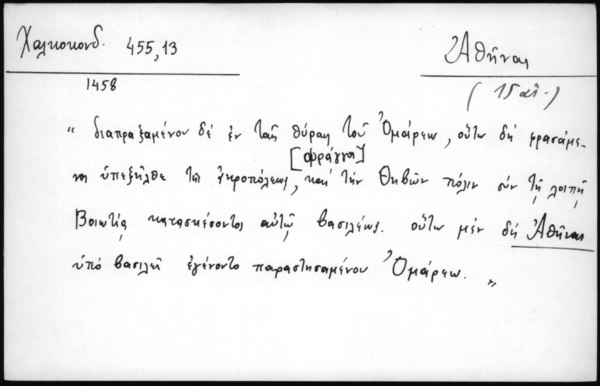 Χαλκοκονδ. 455,13
Ἀθῆναι
1458
(15 αἰ.)
" διαπραξαμένου δὲ ἐν ταῖς θύραις τοῦ Ὀμάρεω, οὕτω δὴ φρασάμε-
[φράγγοι]
νοι ὑπεξῆλθε τῆς ἀκροπόλεως, καὶ τὴν Θηβῶν πόλιν σὺν τῇ λοιπῇ
Βοιωτίᾳ κατασκέσοντος αὐτῷ βασιλέως. οὕτω μὲν δὴ Ἀθῆναι
ὑπὸ βασιλεῖ ἐγένοντο παραστησαμένου Ὀμάρεω. "